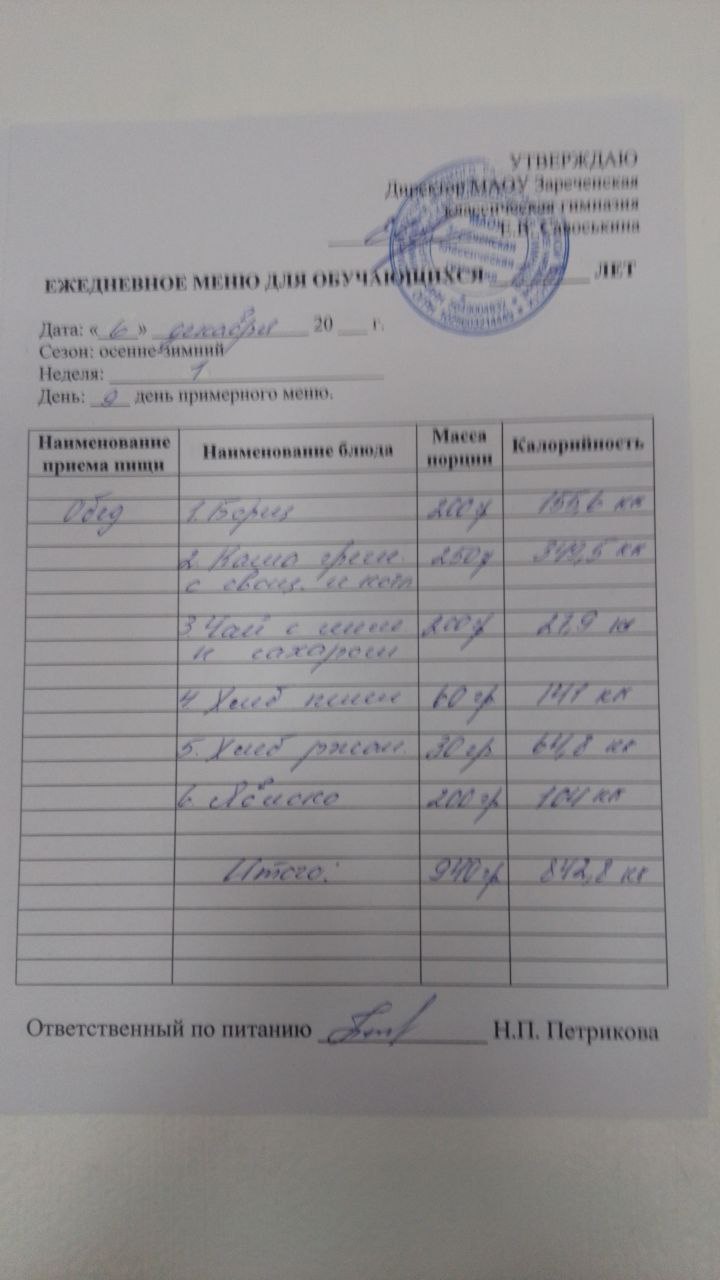 УТВЕРЖДАЮ
Директор МАОУ Зареченская
классическая гимназия
Е.В. Савоськина
ЕЖЕДНЕВНОЕ МЕНЮ ДЛЯ ОБУЧАЮЩИХСЯ ЛЕТ
Дата: «6» декабря 20 г.
Сезон: осенне-зимний
Неделя: 1
День: 2 день примерного меню.
Наименование приема пищи Наименование блюда Масса порции Калорийность
Обед 1. Борщ 200г 155,6 кк
2. Каша греч. 250г 349,5 кк
с овощ. и котл
3. Чай с лим 200г 27,9 кк
и сахаром
4. Хлеб пшен 60 гр 141 кк
5. Хлеб ржан. 30 гр 64,8 кк
6. Яблоко 200 гр 104 кк
Итого: 940 гр 842,8 кк
Ответственный по питанию Н.П. Петрикова